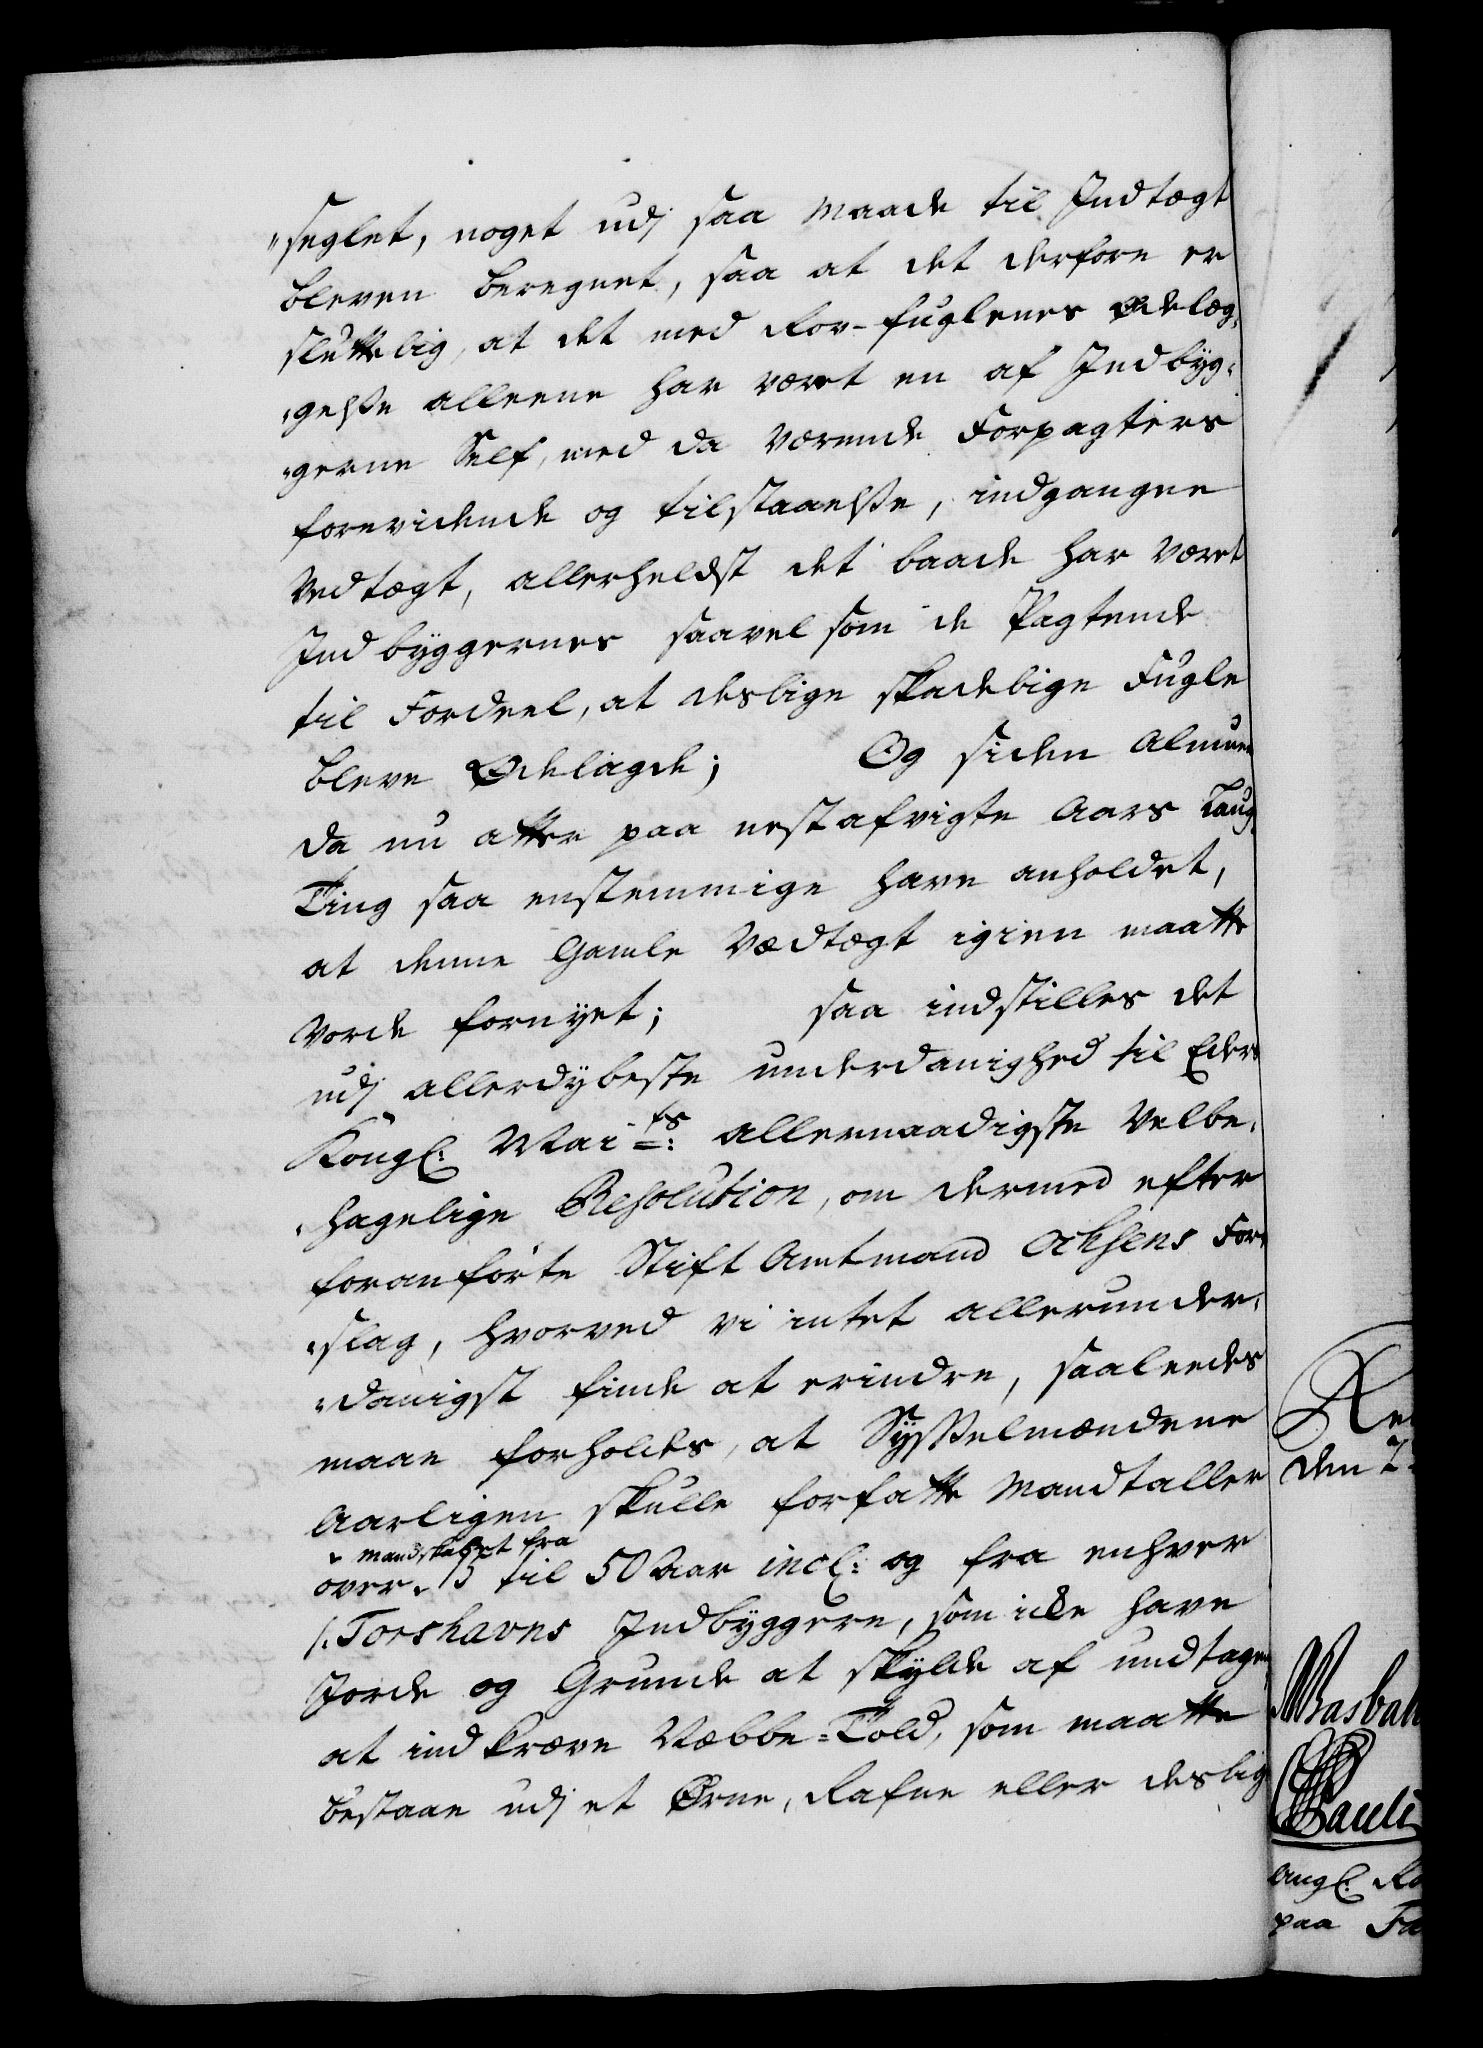 "seglet, noget udj saa Maade til Indtægt
bleven beregnet, saa at det derfore er
sluttelig, at det med Rov-fuglenes Ødelæg-
"gelße alleene har været en af Indbyg-
"gerne Self, med da værende Forpagters
forevidende og tilstaaelße, indgangne
Vedtægt, allerhelst det baade har været
Indbyggernes saavel som de Pagtende
til Fordeel, at deslige skadelige Fugle
bleve Ødelagde; Og siden Almuen
da nu atter paa nestafvigte Aars Laug-
Ting saa enstemmige have anholdet,
at denne Gamle Vedtægt igien maatte
vorde fornyet; saa indstilles det
udj allerdybeste underdanighed til Eders
Kongl: Mai ts: allernaadigste Velbe-
"hagelige Resolution, om dermed efter
foranførte Stift Amtmand Ochsens For-
"slag, hvorved vi intet allerunder-
"danigst finde at erindre, saaleedes
maae forholdes, at Sysselmændene
Aarligen skulle forfatte Mandtaller
mandskabet fra
over 15 til 50 Aar incl: og fra enhver
/: Torshavns Indbyggere, som icke have
Jorde og Grunde at skylde af undtagen
at indkræve Næbbe-Told, som maatte
bestaae udj et Ørne, Rafne eller deslig
den
Pauli
paa